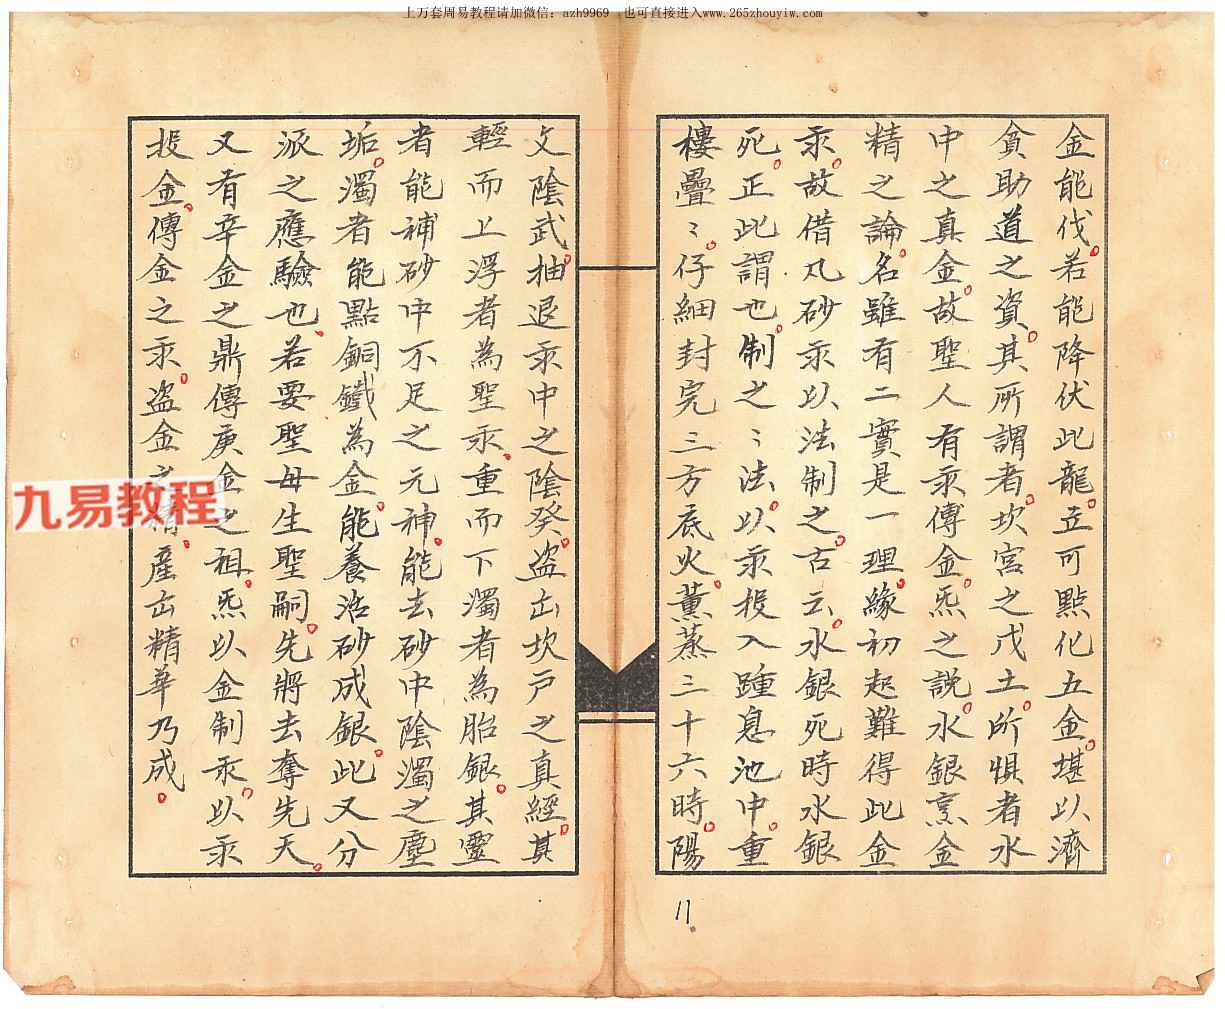 上万套周易教程请加微信：azh9969 ，也可直接进入www.265zhouyiw.com
金能伐。若能降伏此龍。立可點化五金。堪以濟
貪助道之資。其所謂者。坎宮之戊土。所惧者水
中之真金。故聖人有汞傳金。炁之說。水銀烹金
精之論。名雖有二實是一理。緣初起難得此金
汞。故借凡砂汞以法制之。古云。水銀死時水銀
死。正此謂也。制之〻法。以汞投入踵息池中。重
樓疊〻。仔細封完三方底火。薰蒸三十六時。陽
文陰武。抽退汞中之陰癸。盗出坎户之真經。其
輕而上浮者為聖汞。重而下濁者為胎銀。其靈
者能補砂中不足之元神。能去砂中陰濁之塵
垢。濁者能點銅鐵為金。能養活砂成銀。此又分
派之應驗也。若要聖母生聖嗣。先將去奪先天。
又有辛金之鼎傳庚金之祖。炁以金制汞。以汞
投金。傳金之汞。盗金之精。產出精華乃成。
九易教程
11